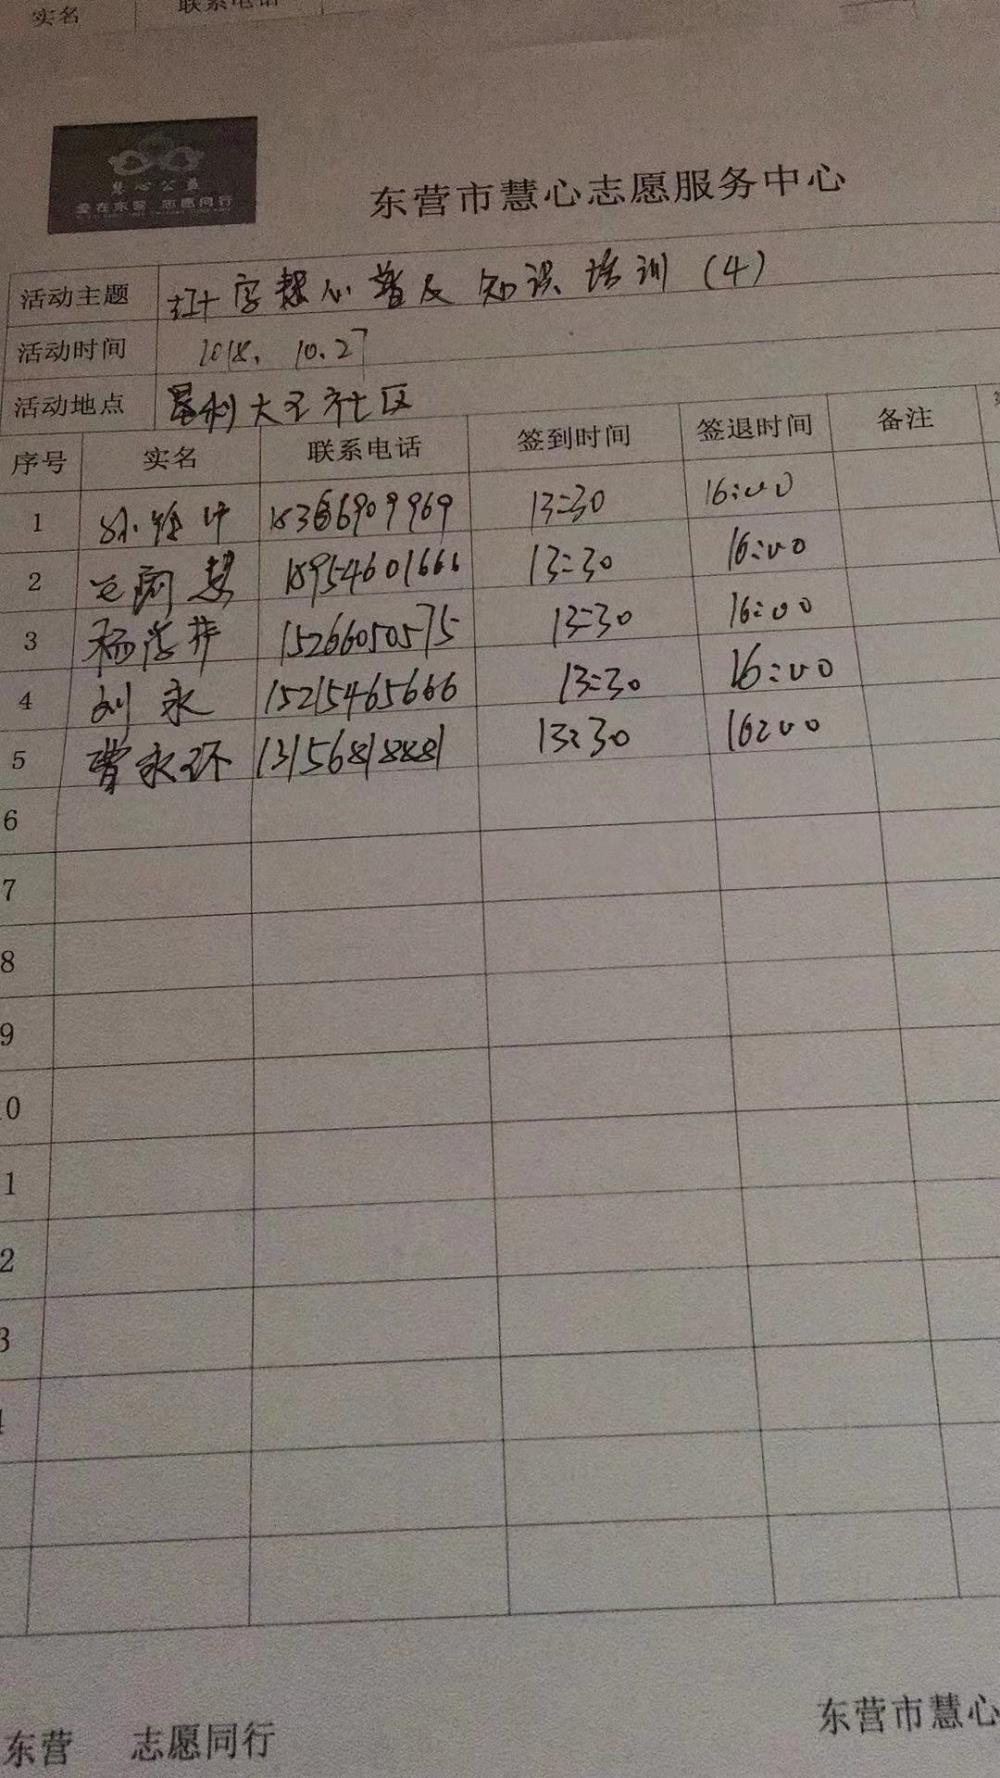 实名 联系电话
慧心公益
爱在东营 志愿同行
东营市慧心志愿服务中心
活动主题 红十字慧心普及知识培训（4）
活动时间 2018. 10.27
活动地点 垦利大王社区
序号 实名 联系电话 签到时间 签退时间 备注
1 18366909969 13:30 16:00
2 18954601666 13:30 16:00
3 杨 15266050575 13:30 16:00
4 刘永 15215465666 13:30 16:00
5 曹永环 13156818881 13:30 16:00
6
7
8
9
0
1
2
3
4
东营 志愿同行
东营市慧心